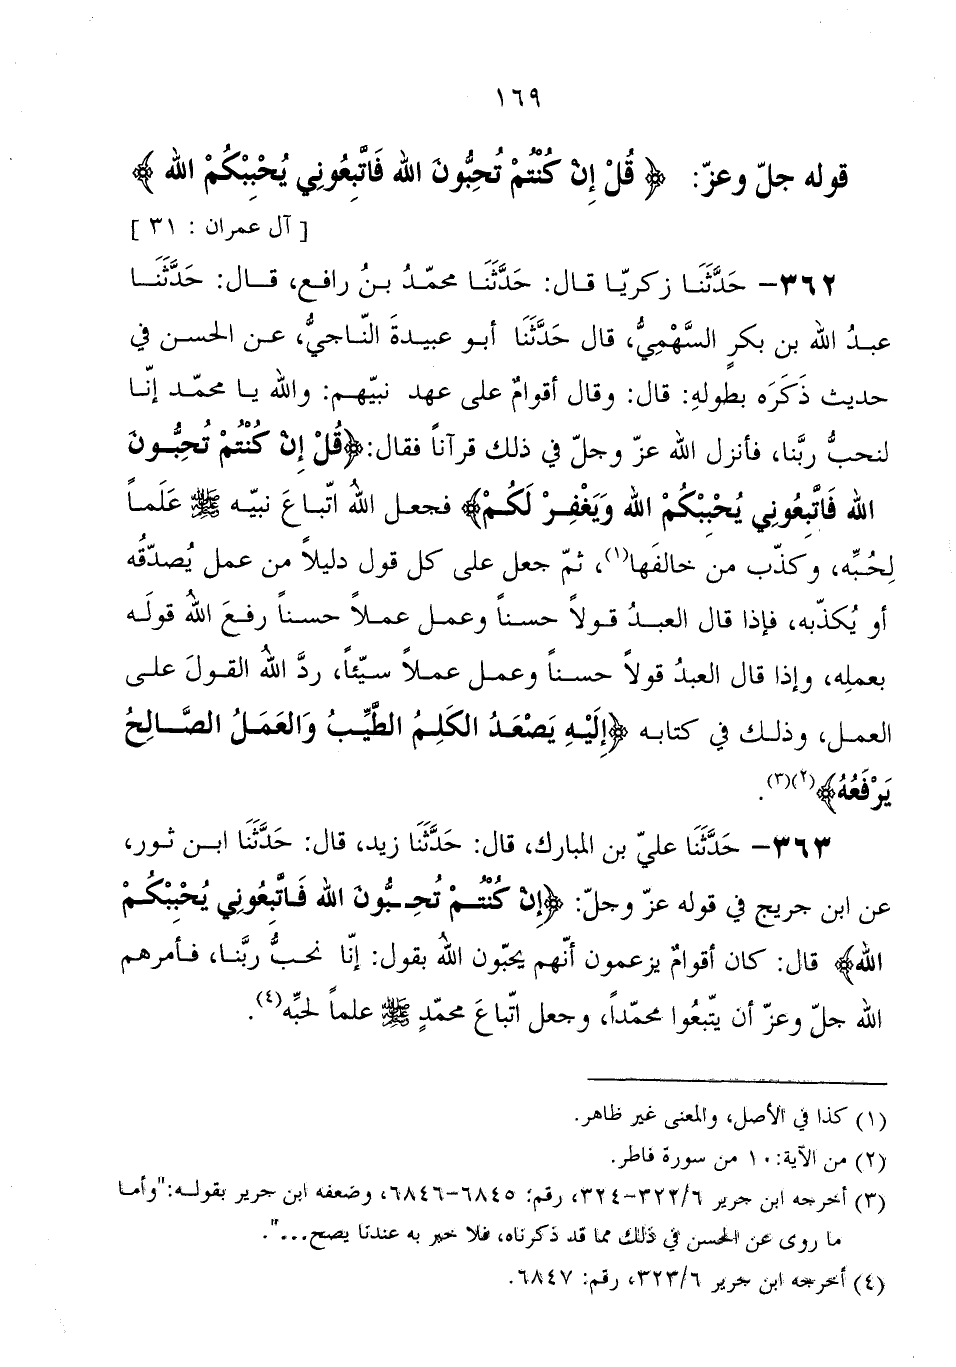 ١٦٩
قوله جلّ وعزّ: ﴿ قُلْ إِنْ كُنْتُمْ تُحِبُّونَ الله فَاتَّبِعُونِي يُحْبِبْكُمْ الله ﴾
[ آل عمران : ٣١ ]
٣٦٢- حَدَّثَنَا زكريّا قال: حَدَّثَنَا محمّدُ بنُ رافع، قال: حَدَّثَنَا
عبدُ الله بن بكرٍ السَّهْمِيُّ، قال حَدَّثَنَا أبو عبيدةَ النّاجيُّ، عن الحسن في
حديث ذَكَرَه بطولهِ: قال: وقال أقوامٌ على عهد نبيّهم: والله يا محمّد إنّا
لنحبُّ ربَّنا، فأنزل الله عزّ وجلّ في ذلك قرآناً فقال:﴿قُلْ إِنْ كُنْتُمْ تُحِبُّونَ
الله فَاتَّبِعُونِي يُحْبِبْكُمْ الله وَيَغْفِرْ لَكُمْ﴾ فجعل اللهُ اتّباعَ نبيّه ﷺ عَلَماً
لِحُبِّه، وكذّب من خالفَها(١)، ثمّ جعل على كل قول دليلاً من عمل يُصدّقُه
أو يُكذّبه، فإذا قال العبدُ قولاً حسناً وعمل عملاً حسناً رفعَ اللهُ قولَه
بعملِه، وإذا قال العبدُ قولاً حسناً وعمل عملاً سيّئاً، ردَّ اللهُ القولَ على
العمل، وذلك في كتابه ﴿إِلَيْهِ يَصْعَدُ الكَلِمُ الطَّيِّبُ وَالعَمَلُ الصَّالِحُ
يَرْفَعُهُ﴾(٢)(٣).
٣٦٣- حَدَّثَنَا عليّ بن المبارك، قال: حَدَّثَنَا زيد، قال: حَدَّثَنَا ابن ثور،
عن ابن جريج في قوله عزّ وجلّ: ﴿إِنْ كُنْتُمْ تُحِبُّونَ الله فَاتَّبِعُونِي يُحْبِبْكُمْ
الله﴾ قال: كان أقوامٌ يزعمون أنّهم يحبّون اللهُ بقول: إنّا نحبُّ ربَّنا، فأمرهم
الله جلّ وعزّ أن يتّبعُوا محمّداً، وجعل اتّباعَ محمّدٍ ﷺ علماً لحبِّه(٤).
(١) كذا في الأصل، والمعنى غير ظاهر.
(٢) من الآية: ١٠ من سورة فاطر.
(٣) أخرجه ابن جرير ٣٢٢/٦-٣٢٤، رقم: ٦٨٤٥-٦٨٤٦، وضعفه ابن جرير بقوله:"وأما
ما روى عن الحسن في ذلك مما قد ذكرناه، فلا خبر به عندنا يصح...".
(٤) أخرجه ابن جرير ٣٢٣/٦، رقم: ٦٨٤٧.